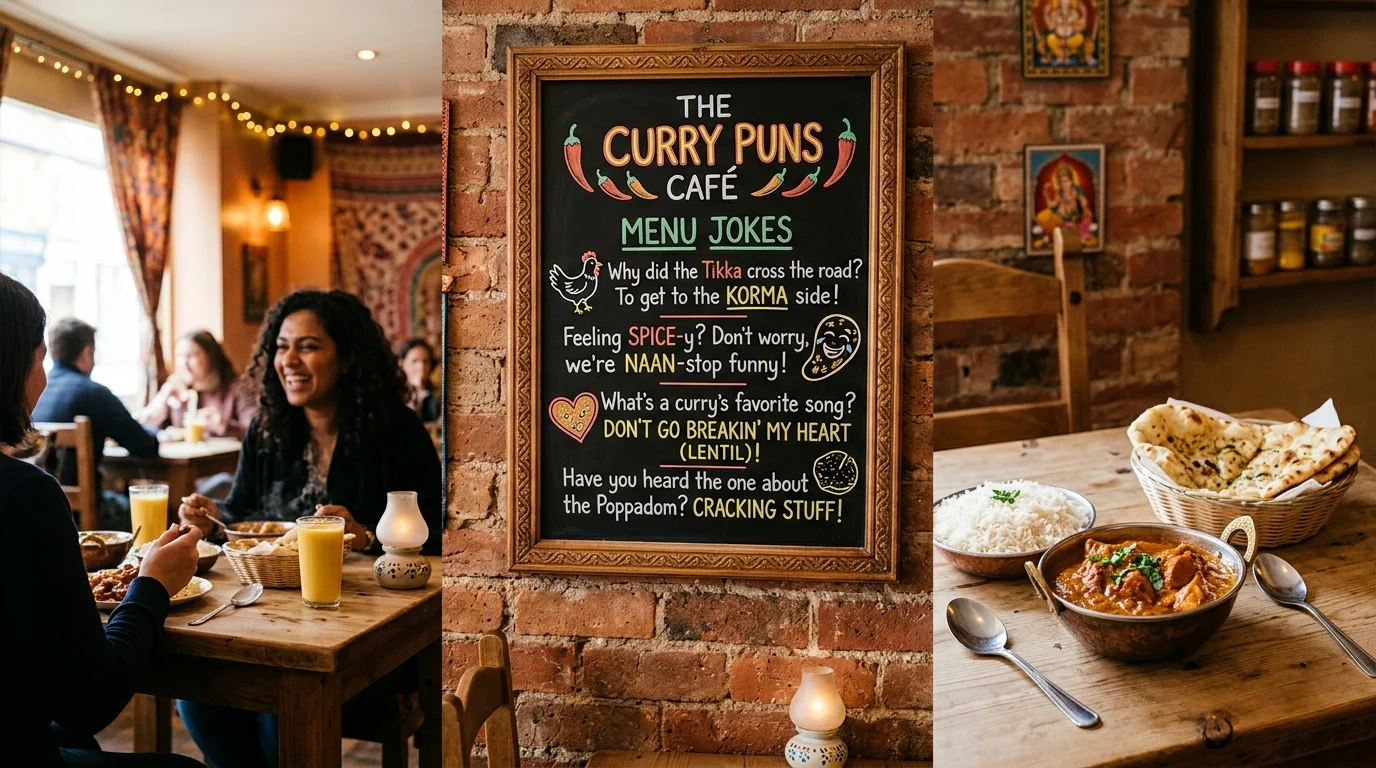 THE
CURRY PUNS
CAFÉ
MENU JOKES
Why did the Tikka cross the road?
To get to the KORMA side!
Feeling SPICE-y? Don't worry,
we're NAAN-stop funny!
What's a curry's favorite song?
DON'T GO BREAKIN' MY HEART
(LENTIL)!
Have you heard the one about
the Poppadom? CRACKING STUFF!